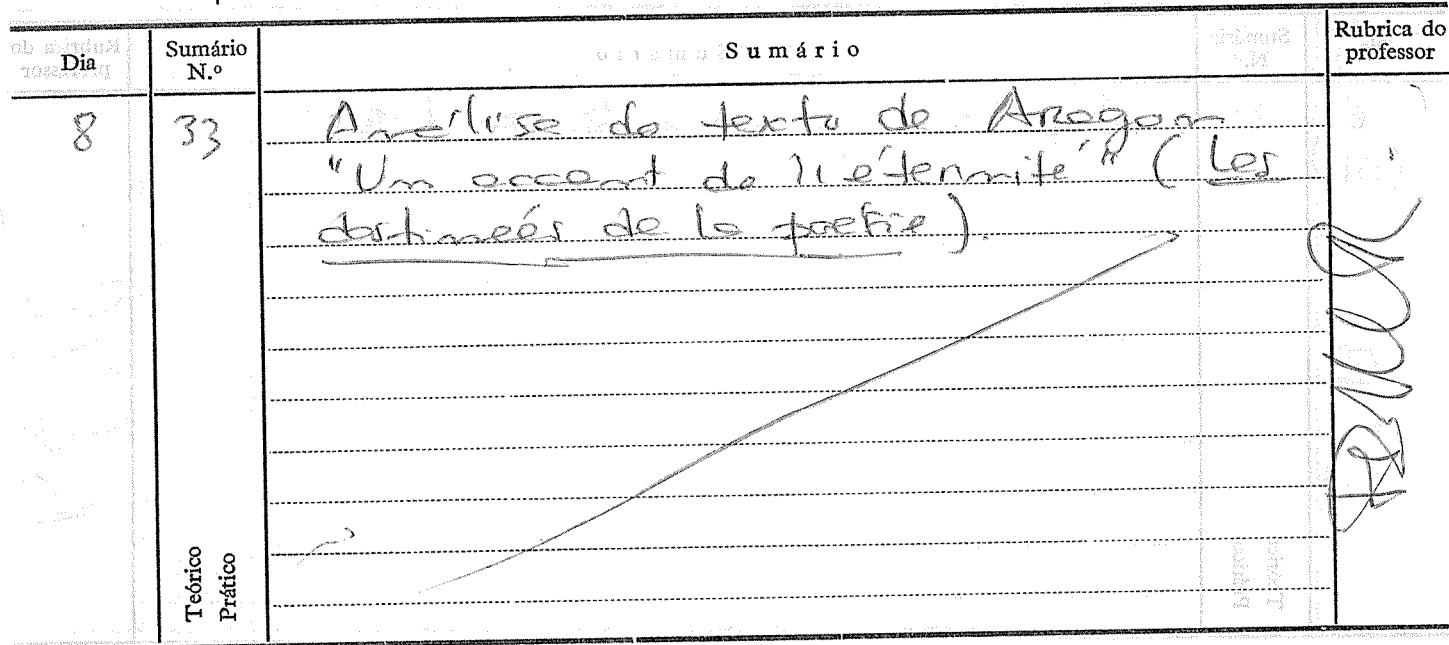 Dia
Sumário N.º
Sumário
Rubrica do professor
8
33
Análise do texto de Aragon
"Un accent de l'éternité" (Les
destinées de la poésie).
Teórico
Prático